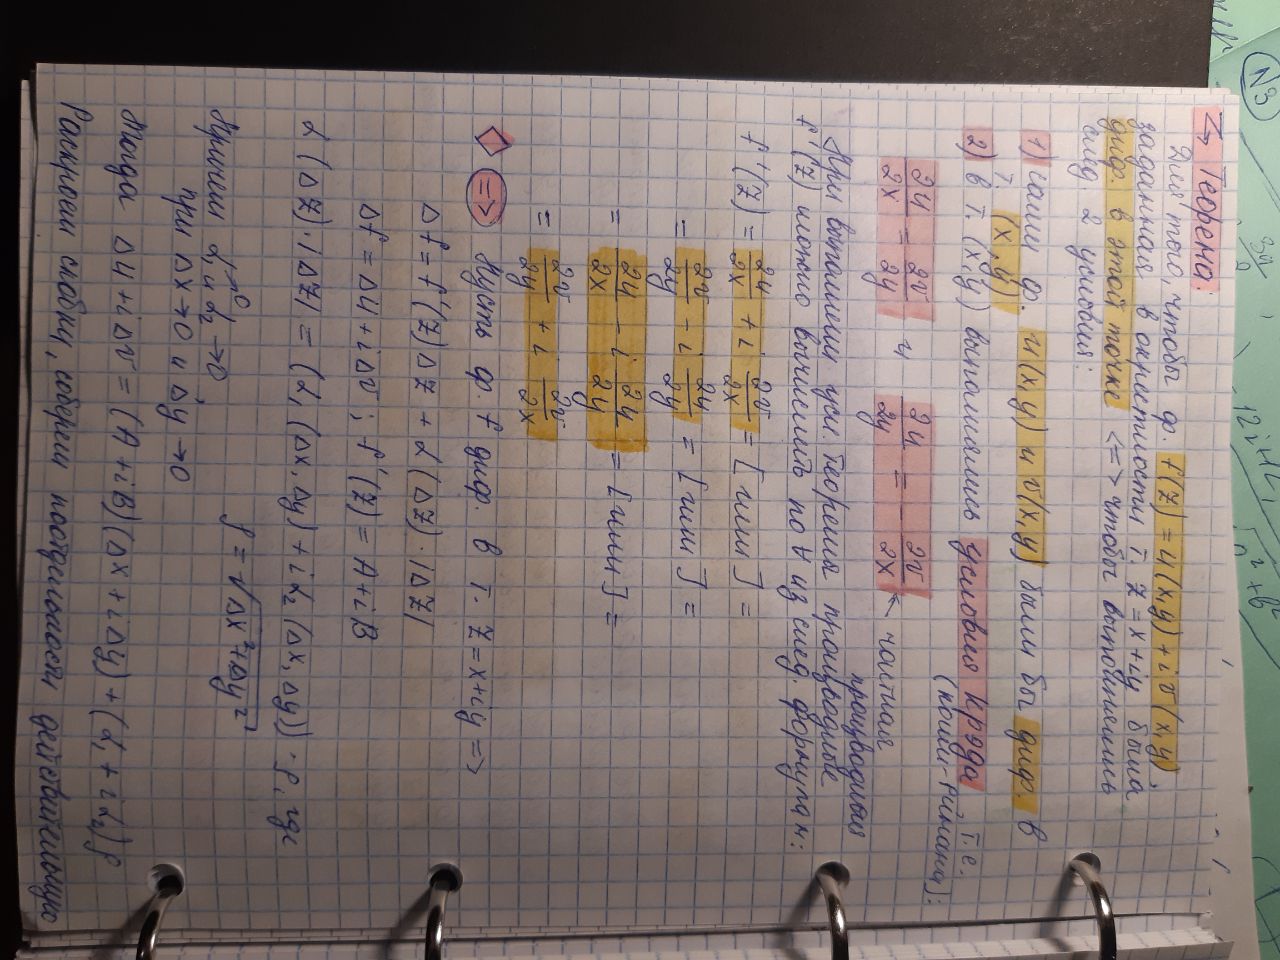 Теорема:
Для того, чтобы ф. f(z) = u(x,y) + i v(x,y),
заданная в окрестности т. z = x+iy была
диф. в этой точке <=> чтобы выполнялись
след. 2 условия:
1) сами ф. u(x,y) и v(x,y) были бы диф. в
т. (x,y)
2) в т. (x,y) выполнялись условия Кр-да т.е.
(Коши-Римана):
∂u/∂x = ∂v/∂y и ∂u/∂y = - ∂v/∂x ← частная производная
При выполнении усл. теоремы производные
f'(z) можно вычислить по ∀ из след. формулам:
f'(z) = ∂u/∂x + i ∂v/∂x = [или] =
= ∂v/∂y - i ∂u/∂y = [или] =
= ∂u/∂x - i ∂u/∂y = [или] =
= ∂v/∂y + i ∂v/∂x
◇ => Пусть ф. f диф. в т. z = x+iy =>
Δf = f'(z)Δz + α(Δz)·|Δz|
Δf = Δu + iΔv ; f'(z) = A+iB
α(Δz)·|Δz| = (α₁(Δx,Δy) + iα₂(Δx,Δy))·ρ, где
ρ = √Δx²+Δy²
α₁→0 и α₂→0
при Δx→0 и Δy→0
тогда Δu + iΔv = (A + iB)(Δx + iΔy) + (α₁ + iα₂)ρ
Раскроем скобки, соберем действительную
N3